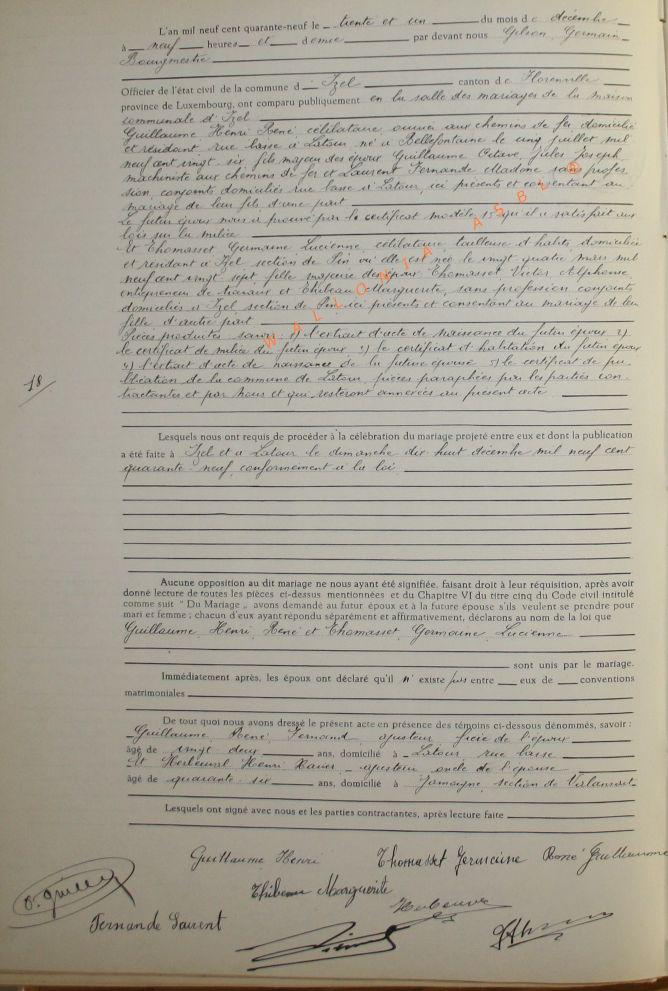 L'an mil neuf cent quarante-neuf le trente et un du mois de décembre
à neuf heures et demie par devant nous Gilson, Germain
Bourgmestre
Officier de l'état civil de la commune d' Izel canton de Florenville
province de Luxembourg, ont comparu publiquement en la salle des mariages de la maison
communale d'Izel
Guillaume Henri René, célibataire, ouvrier aux chemins de fer domicilié
et résidant rue basse à Latour né à Bellefontaine le cinq juillet mil
neuf cent vingt six, fils majeur des époux Guillaume Octave, Jules Joseph
machiniste aux chemins de fer et Laurent Fernande Madone sans profes
sion, conjoints domiciliés rue basse à Latour, ici présents et consentant au
mariage de leur fils, d'une part
Le futur époux nous a prouvé par le certificat modèle 15 qu'il a satisfait aux
lois sur la milice
Et Thomasset Germaine Lucienne, célibataire, tailleuse d'habits, domiciliée
et résidant à Izel section de Pin où elle est née le vingt quatre mars mil
neuf cent vingt sept fille majeure des époux Thomasset Victor Alphonse,
entrepreneur de travaux et Thibeau Marguerite, sans profession conjoints
domiciliés à Izel section de Pin, ici présents et consentant au mariage de leur
fille d'autre part
Pièces produites savoir: 1) l'extrait d'acte de naissance du futur époux 2)
le certificat de milice du futur époux 3) le certificat d'habitation du futur époux
4) l'extrait d'acte de naissance de la future épouse 5) le certificat de pu-
blication de la commune de Latour, pièces paraphées par les parties con-
tractantes et par Nous et qui resteront annexées au présent acte
18
WALLONIA ASBL ©
Lesquels nous ont requis de procéder à la célébration du mariage projeté entre eux et dont la publication
a été faite à Izel et à Latour le dimanche dix huit décembre mil neuf cent
quarante-neuf, conformément à la loi
Aucune opposition au dit mariage ne nous ayant été signifiée, faisant droit à leur réquisition, après avoir
donné lecture de toutes les pièces ci-dessus mentionnées et du Chapitre VI du titre cinq du Code civil intitulé
comme suit " Du Mariage „ avons demandé au futur époux et à la future épouse s'ils veulent se prendre pour
mari et femme ; chacun d'eux ayant répondu séparément et affirmativement, déclarons au nom de la loi que
Guillaume, Henri, René et Thomasset, Germaine, Lucienne
sont unis par le mariage.
Immédiatement après, les époux ont déclaré qu'il n'existe pas entre eux de conventions
matrimoniales
De tout quoi nous avons dressé le présent acte en présence des témoins ci-dessous dénommés, savoir :
Guillaume, René, Fernand, ajusteur frère de l'époux
âgé de vingt-deux ans, domicilié à Latour rue basse
et Herbeuval Henri Xavier, ajusteur oncle de l'épouse
âgé de quarante-six ans, domicilié à Jamoigne, section de Valansart
Lesquels ont signé avec nous et les parties contractantes, après lecture faite
Guillaume Henri Thomasset Germaine René Guillaume
Thibeau Marguerite
Fernande Laurent